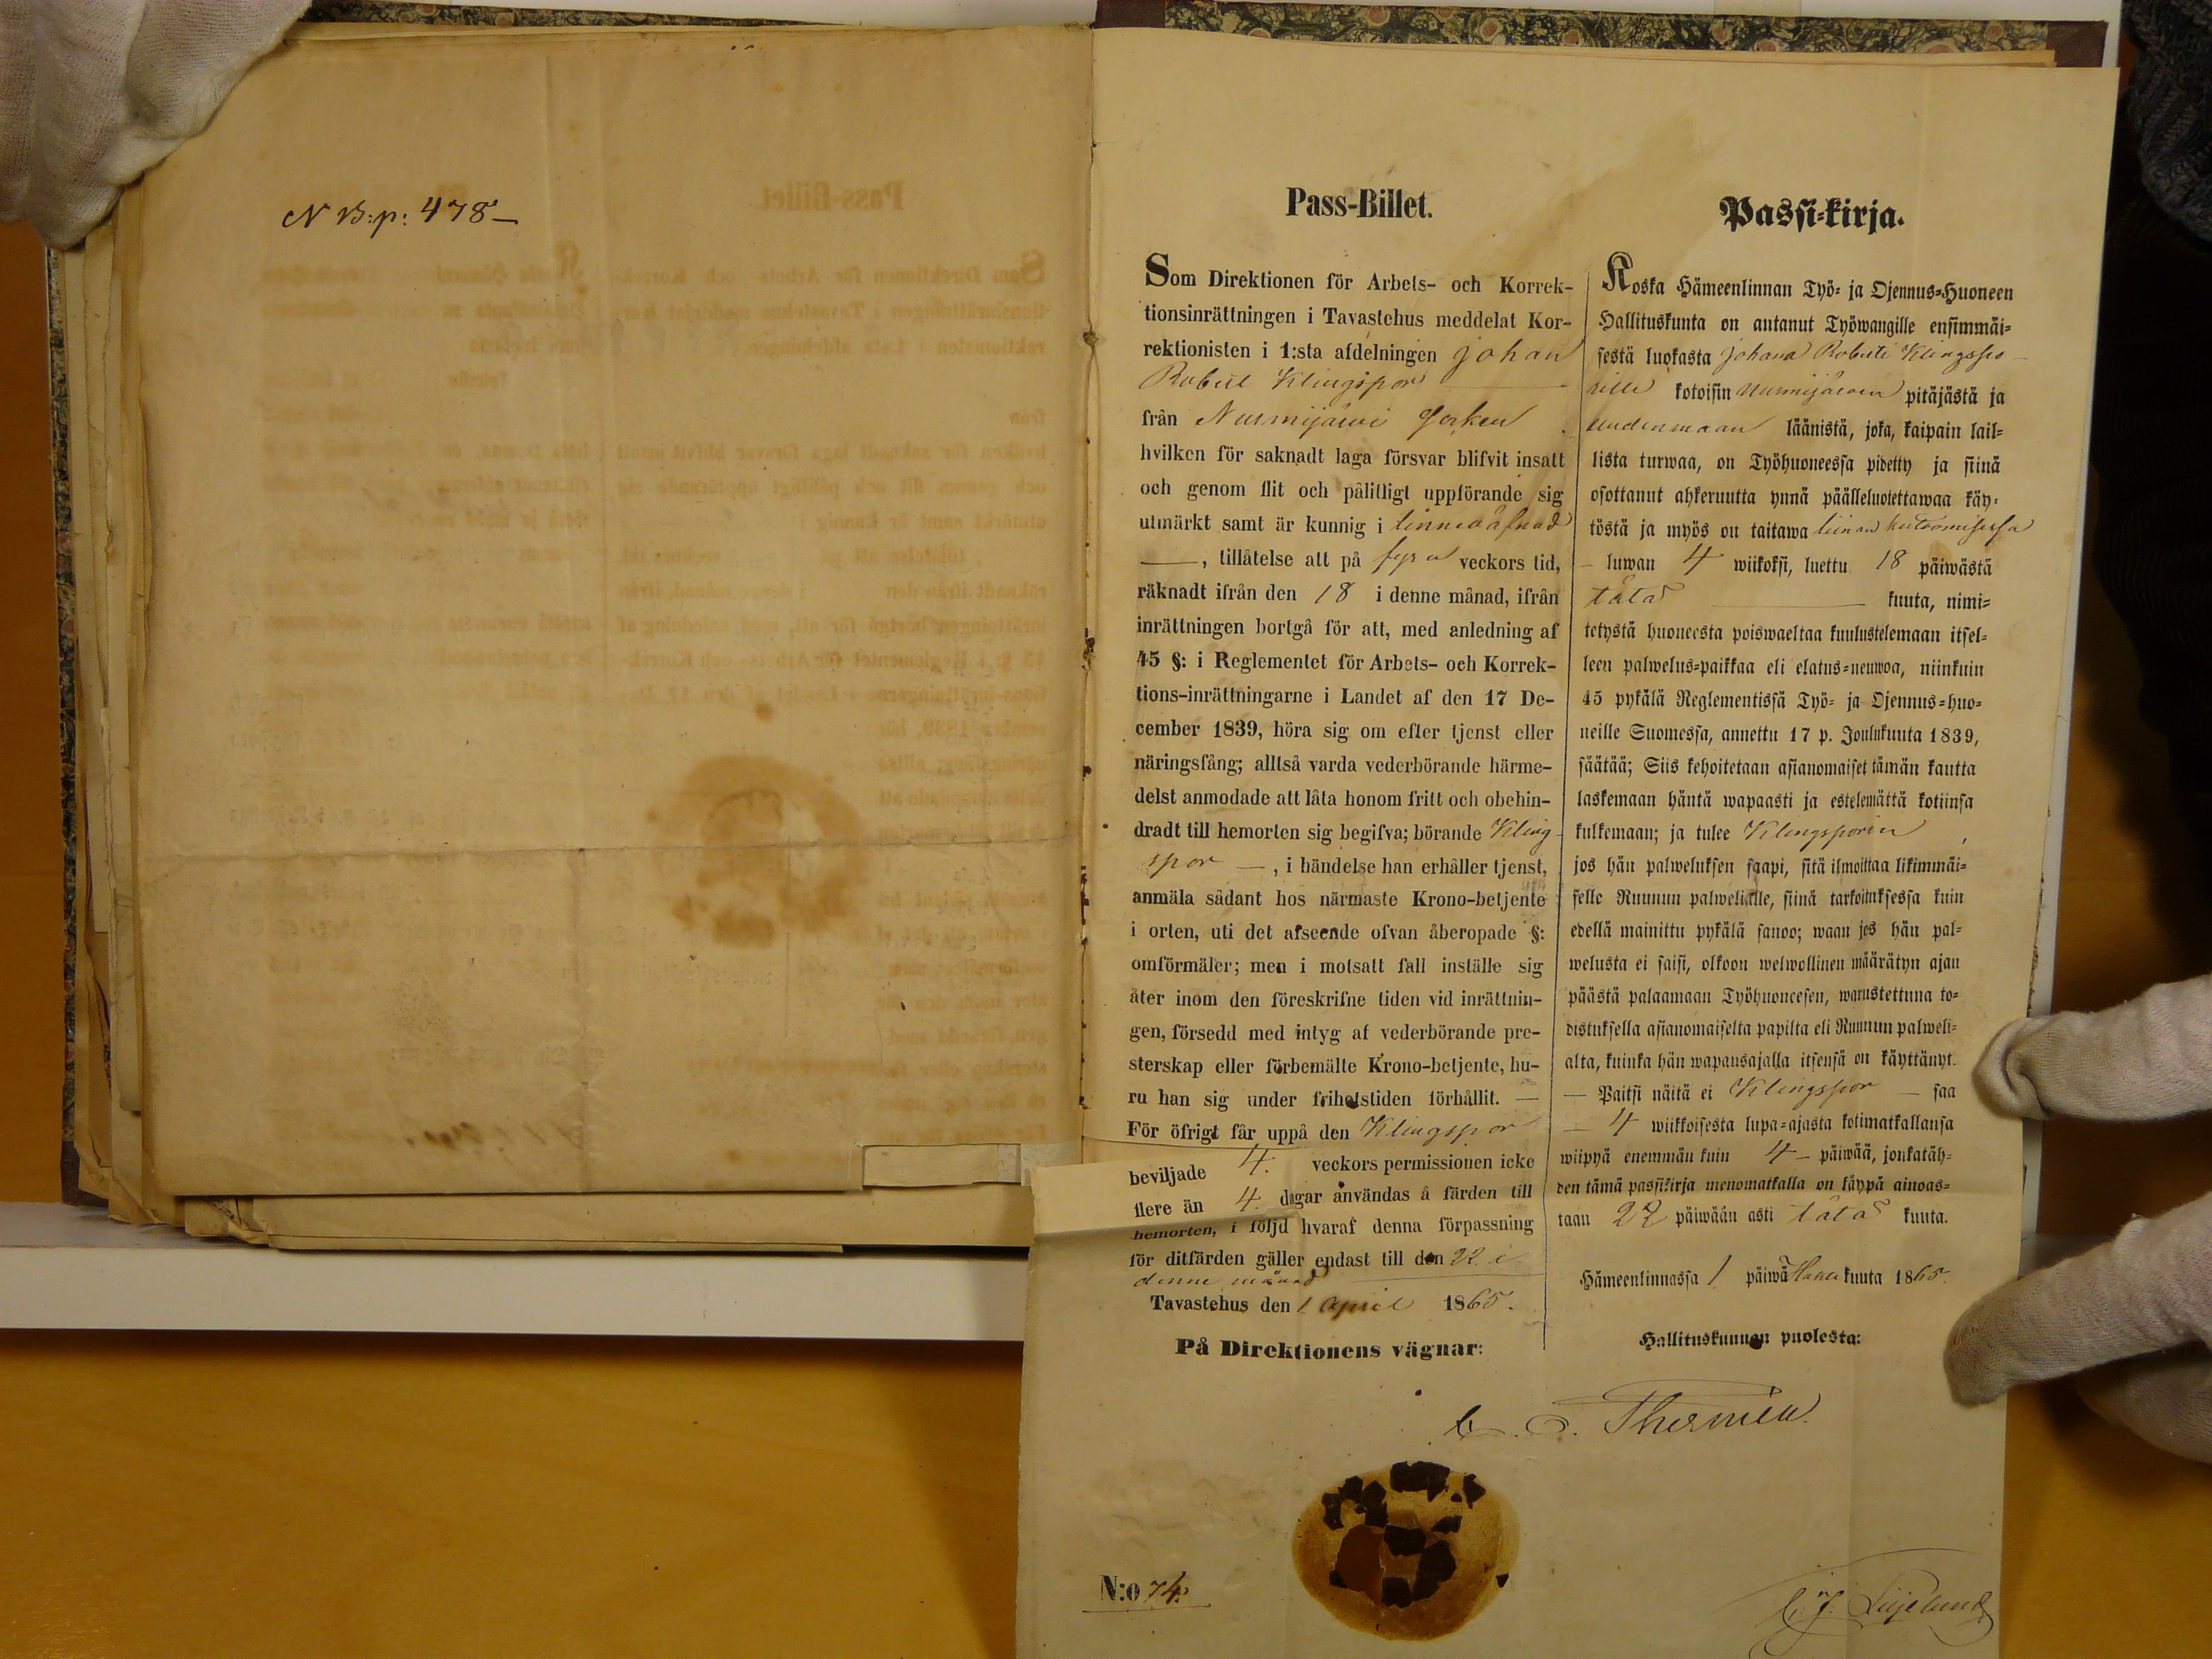 N B:p: 478
Pass-Billet.
Som Direktionen för Arbets- och Korrek-
tionsinrättningen i Tavastehus meddelat Kor-
rektionisten i 1:sta afdelningen Johan
Robert Klingspor
från Nurmijärwi Socken
hvilken för saknadt laga försvar blifvit insatt
och genom flit och pålitligt uppförande sig
utmärkt samt är kunnig i linnewäfnad
—, tillåtelse att på fyra veckors tid,
räknadt ifrån den 18 i denne månad, ifrån
inrättningen bortgå för att, med anledning af
45 §: i Reglementet för Arbets- och Korrek-
tions-inrättningarne i Landet af den 17 De-
cember 1839, höra sig om efter tjenst eller
näringsfång; alltså varda vederbörande härme-
delst anmodade att låta honom fritt och obehin-
dradt till hemorten sig begifva; börande Kling-
spor —, i händelse han erhåller tjenst,
anmäla sådant hos närmaste Krono-betjente
i orten, uti det afseende ofvan åberopade §:
omförmäler; men i motsatt fall inställe sig
åter inom den föreskrifne tiden vid inrättnin-
gen, försedd med intyg af vederbörande pre-
sterskap eller förbemälte Krono-betjente, hu-
ru han sig under frihetstiden förhållit. —
För öfrigt får uppå den Klingspor
beviljade 4. veckors permissionen icke
flere än 4. dagar användas å färden till
hemorten, i följd hvaraf denna förpassning
för ditfärden gäller endast till den 22 i
denne månad
Tavastehus den 1 April 1865.
På Direktionens vägnar:
Passi-kirja.
Koska Hämeenlinnan Työ- ja Ojennus-Huoneen
Hallituskunta on antanut Työwangille ensimmäi-
sestä luokasta Johana Roberti Klingspo-
rille kotoisin Nurmijärwen pitäjästä ja
Uudenmaan läänistä, joka, kaipain lail-
lista turwaa, on Työhuoneessa pidetty ja siinä
osottanut ahkeruutta ynnä päälleluotettawaa käy-
töstä ja myös on taitawa liinan kutoomisessa
– luwan 4 wiikoksi, luettu 18 päiwästä
tätä — kuuta, nimi-
tetystä huoneesta poiswaeltaa kuulustelemaan itsel-
leen palwelus-paikkaa eli elatus-neuwoa, niinkuin
45 pykälä Reglementissä Työ- ja Ojennus-huo-
neille Suomessa, annettu 17 p. Joulukuuta 1839,
säätää; Siis kehoitetaan asianomaiset tämän kautta
laskemaan häntä wapaasti ja estelemättä kotiinsa
kulkemaan; ja tulee Klingsporin,
jos hän palweluksen saapi, sitä ilmoittaa likimmäi-
selle Ruunun palwelialle, siinä tarkoituksessa kuin
edellä mainittu pykälä sanoo; waan jos hän pal-
welusta ei saisi, olkoon welwollinen määrätyn ajan
päästä palaamaan Työhuoneesen, warustettuna to-
distuksella asianomaiselta papilta eli Ruunun palweli-
alta, kuinka hän wapausajalla itsensä on käyttänyt.
— Paitsi näitä ei Klingspor — saa
— 4 wiikkoisesta lupa-ajasta kotimatkallansa
wiipyä enemmän kuin 4 – päiwää, jonkatäh-
den tämä passikirja menomatkalla on käypä ainoas-
taan 22 päiwään asti tätä kuuta.
Hämeenlinnassa 1 päiwä kuuta 1865.
Hallituskunnan puolesta:
Thermén
N:o 74.
C. J. Liljelund